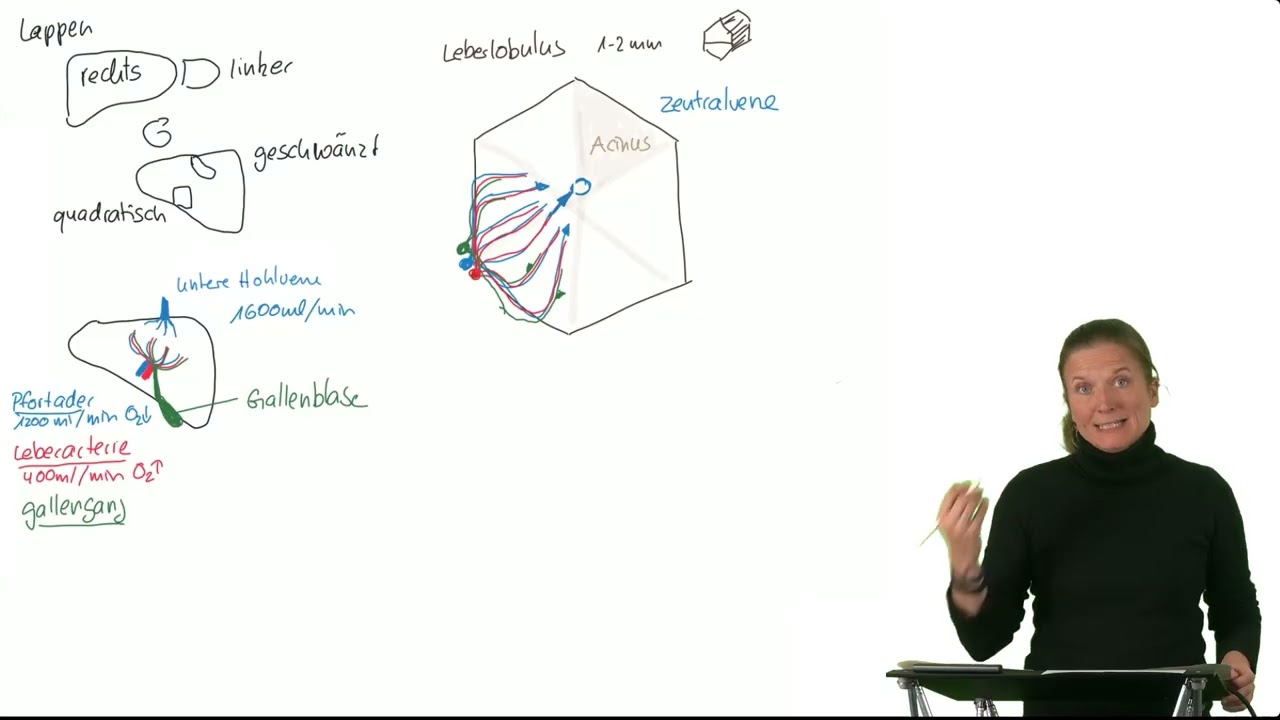 Lappen
rechts
linker
geschwänzt
quadratisch
untere Hohlvene
1600ml/min
Pfortader
1200 ml/min O₂↓
Leberarterie
400ml/min O₂↑
gallengang
Gallenblase
Leberlobulus 1-2mm
Zentralvene
Acinus